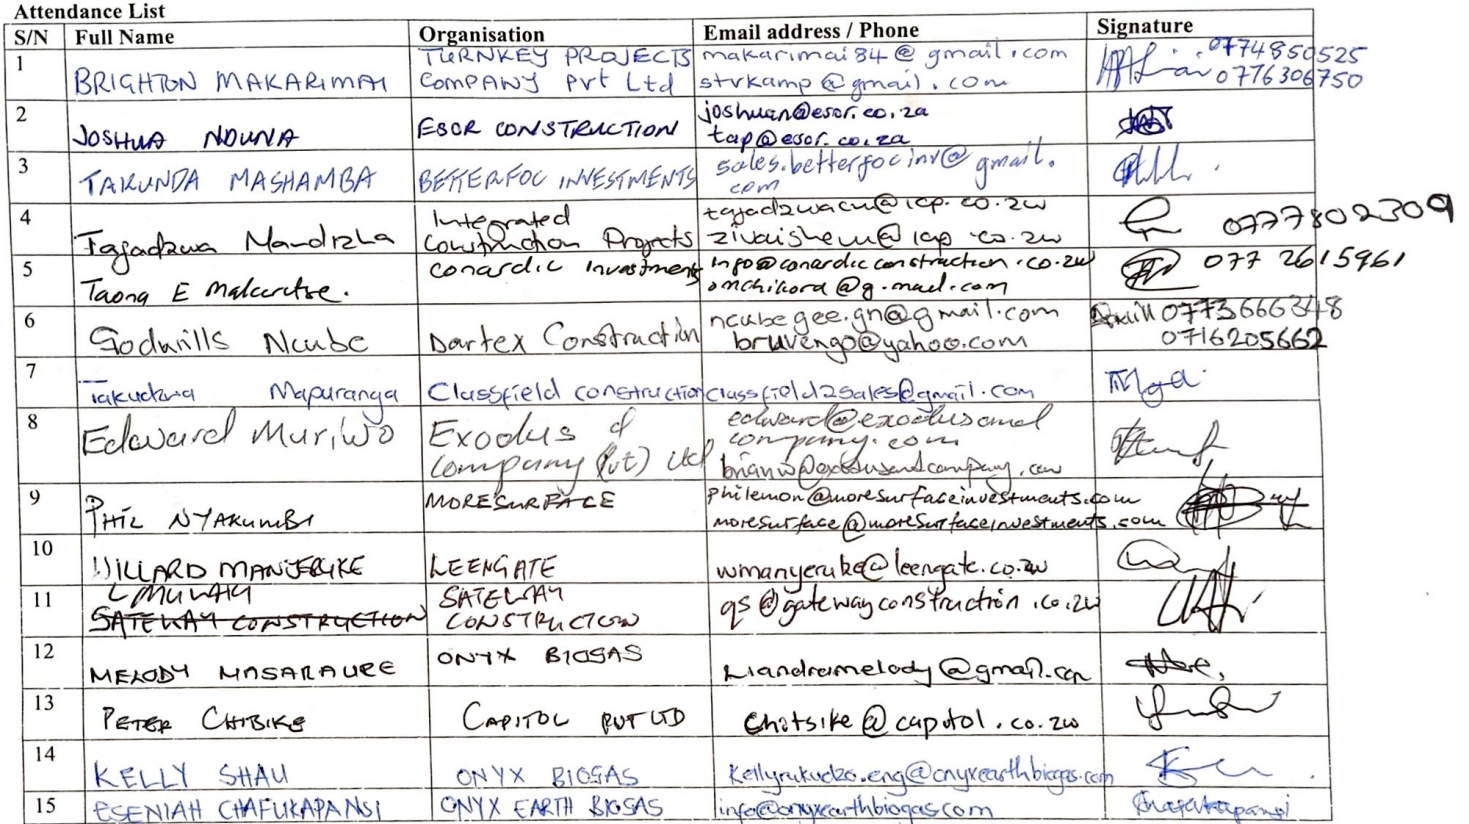 Attendance List
S/N Full Name Organisation Email address / Phone Signature
1 BRIGHTON MAKARIMAI TURNKEY PROJECTS COMPANY Pvt Ltd makarimai84@gmail.com 0774850525
stvkamp@gmail.com 0776306750
2 JOSHUA NDUNA ESOR CONSTRUCTION joshuan@esor.co.za
tap@esor.co.za
3 TAKUNDA MASHAMBA BETTERFOC INVESTMENTS sales.betterfocinv@gmail.
com
4 Tajadzwa Mandizha Integrated Construction Projects tajadzwacm@icp.co.zw 0777802309
zivaishem@icp.co.zw
5 Taona E Conardic Investments info@conardicconstruction.co.zw 077 2615961
omchikora@g.mail.com
6 Godwills Ncube Dartex Construction ncubegee.gn@gmail.com 0773666348
bruvengo@yahoo.com 0716205662
7 Takudzwa Mapuranga Classfield construction classfield2sales@gmail.com
8 Edward Muriwo Exodus & Company (Pvt) Ltd edward@exodusand
company.com
brianw@exodusandcompany.com
9 PHIL NYAKUMBI MORESURFACE philemon@moresurfaceinvestments.com
moresurface@moresurfaceinvestments.com
10 WILLARD MANJERUKE LEENGATE wmanyeruke@leengate.co.zw
11 GATEWAY CONSTRUCTION GATEWAY CONSTRUCTION qs@gatewayconstruction.co.zw
12 MELODY MASARAURE ONYX BIOGAS Liandramelody@gmail.com
13 PETER CHITSIKE CAPITOL PVT LTD chitsike@capitol.co.zw
14 KELLY SHAU ONYX BIOGAS Kellyrukudzo.eng@onyxearthbiogas.com
15 ESENIAH CHAFUKAPANSI ONYX EARTH BIOGAS info@onyxearthbiogas.com